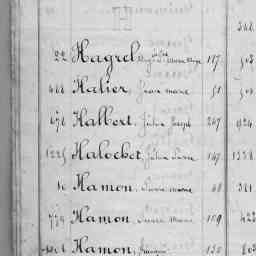 H
348
22 Hagrel 187 308
488 Halier, Jean marie 51 508
678 Halbert, Julien Joseph 247 924
1225 Halochet, Julien Pierre 147 1338
16 Hamon, Pierre marie 48 381
779 Hamon, Pierre Marie 109 422
Hamon, François 130 802